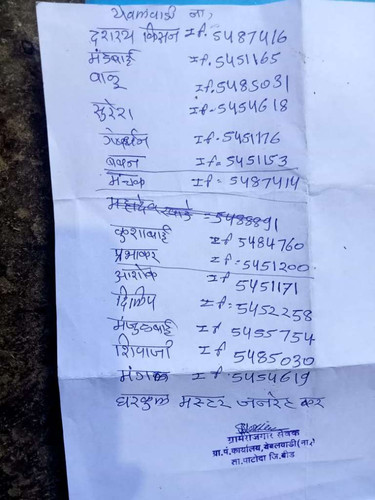 येवलवाडी ना,
दशरथ किसन If. 5487416
मंडाबाई If. 5451165
वाळू If. 5485031
सुरेश If. 5454618
गोवर्धन If 5451176
बबन If= 5451153
मचक If= 5487414
महादेव = 5488891
कुशाबाई If 5484760
प्रभाकर If= 5451200
अशोक If 5451171
दिलिप If. 5452258
मंजुळाबाई If 5455754
शिवाजी If 5485030
मंगल If. 5454619
घरकुल मस्टर जनरेट कर
ग्रामरोजगार सेवक
ग्रा.पं.कार्यालय, येवलवाडी(ना.)
ता.पाटोदा जि.बीड